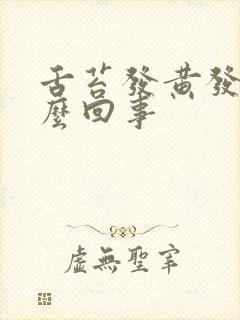 舌苔發黃發
麼回事
虛無聖宰